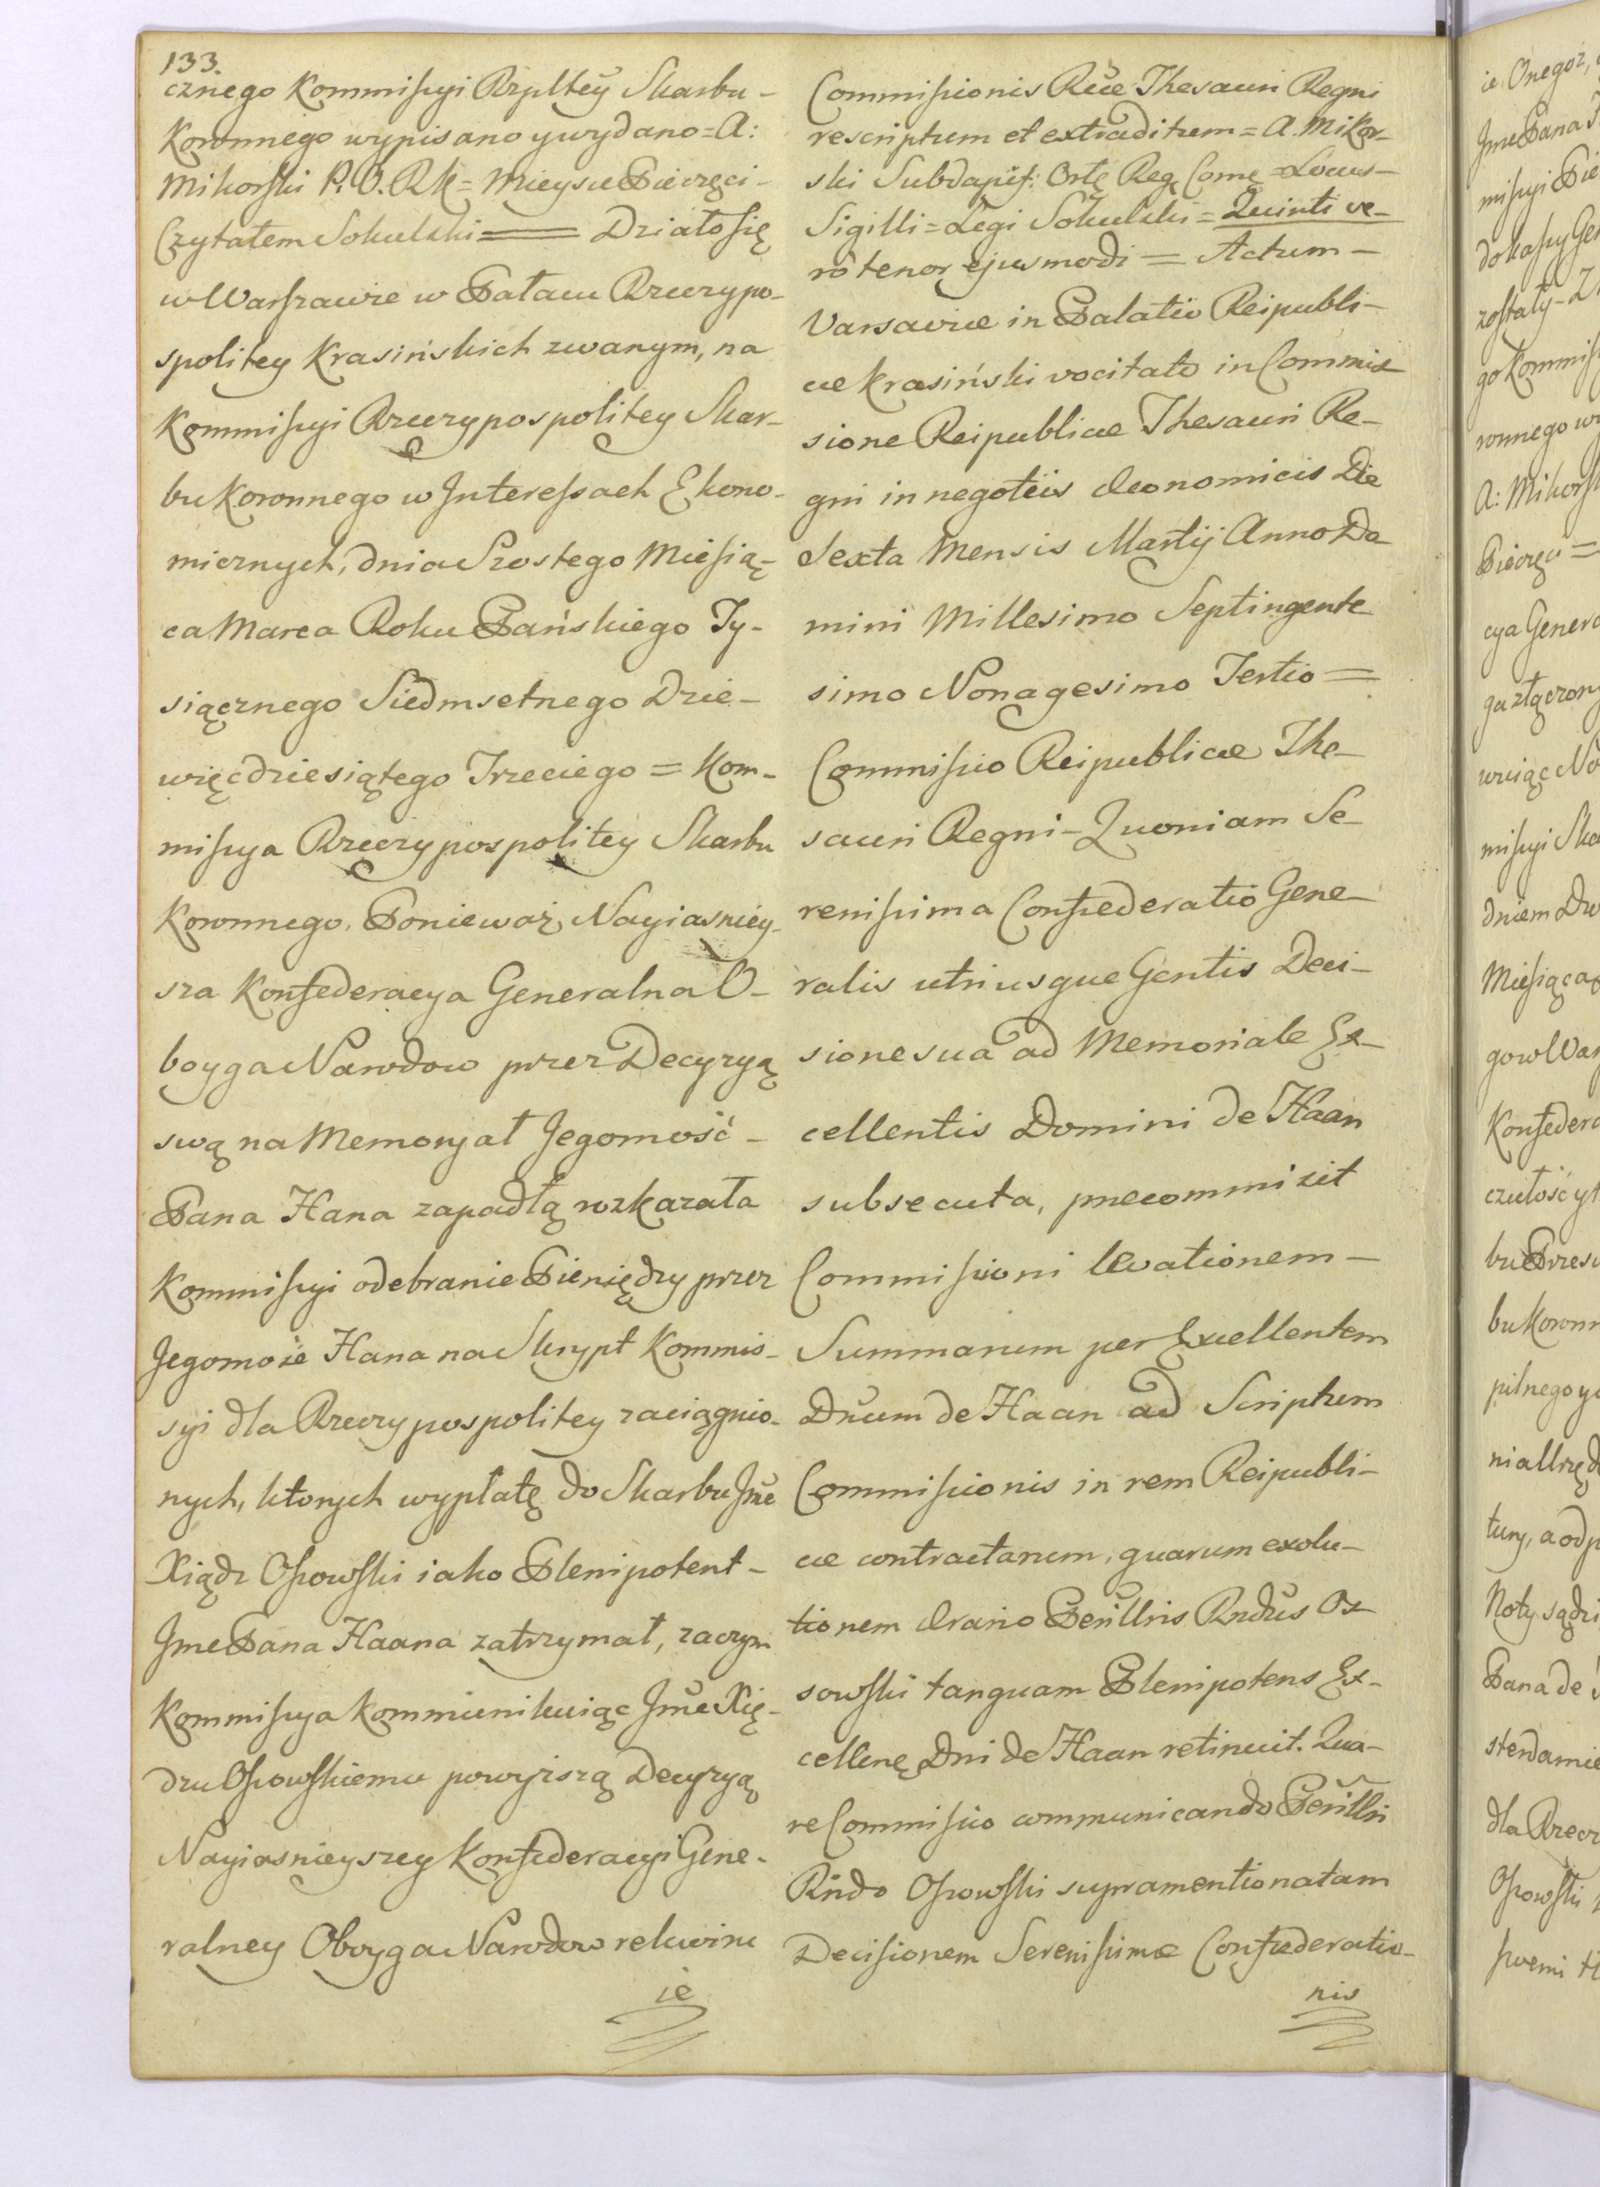 133.
cznego Kommissyi Rzpltey Skarbu-
Koronnego wypisano y wydano = A:
Mikorski P. O. Rk = Mieysce Pieczęci-
Czytałem Sokulski = Działo się
w Warszawie w Pałacu Rzeczypo-
spolitey Krasińskich zwanym, na
Kommissyi Rzeczypospolitey Skar-
bu Koronnego w Interessach Ekono-
micznych, dnia Szostego Miesią-
ca Marca Roku Pańskiego Ty-
siącznego Siedmsetnego Dzie-
więćdziesiątego Trzeciego = Kom-
missya Rzeczypospolitey Skarbu
Koronnego. Ponieważ Nayiaśniey-
sza Konfederacya Generalna O-
boyga Narodow przez Decyzyą
swą na Memoryał Jegomość-
Pana Hana zapadłą rozkazała
Kommissyi odebranie Pieniędzy przez
Jegomość Hana na Skrypt Kommis-
syi dla Rzeczypospolitey zaciągnio-
nych, ktorych wypłatę do Skarbu Jme
Xiądz Ossowski iako Plenipotent-
Jme Pana Haana zatrzymał, zaczym
Kommissya kommunikuiąc Jme Xię-
dzu Ossowskiemu powyższą Decyzyą
Nayiasnieyszey Konfederacyi Gene-
ralney Oboyga Narodow rekwiru
ie
Commissionis Rcae Thesauri Regni
rescriptum et extraditum = A. Mikor-
ski Subdapif: Ostę Reg Come = Locus-
Sigilli = Legi Sokulski = Quinti ve-
rò tenor ejusmodi = Actum-
Varsaviae in Palatio Reipubli-
cae Krasiński vocitato in Commis
sione Reipublicae Thesauri Re-
gni in negotiis Oeconomicis Die
Sexta Mensis Martij Anno Do
mini Millesimo Septingente
simo Nonagesimo Tertio =
Commissio Reipublicae The-
sauri Regni - Quoniam Se-
renissima Confoederatio Gene-
ralis utriusque Gentis Deci-
sione sua ad Memoriale Ex-
cellentis Domini de Haan
subsecuta, praecommisit
Commissioni levationem-
Summarum per Excellentem
Dnum de Haan ad Scriptum
Commissionis in rem Reipubli-
cae contractarum, quarum exolu-
tionem Aerario Perillris Rndus Os-
sowski tanquam Plenipotens Ex-
cellenę Dni de Haan retinuit. Qua-
re Commissio communicando Perillri
Rndo Ossowski supramentionatam
Decisionem Serenissimae Confoederatio-
nis